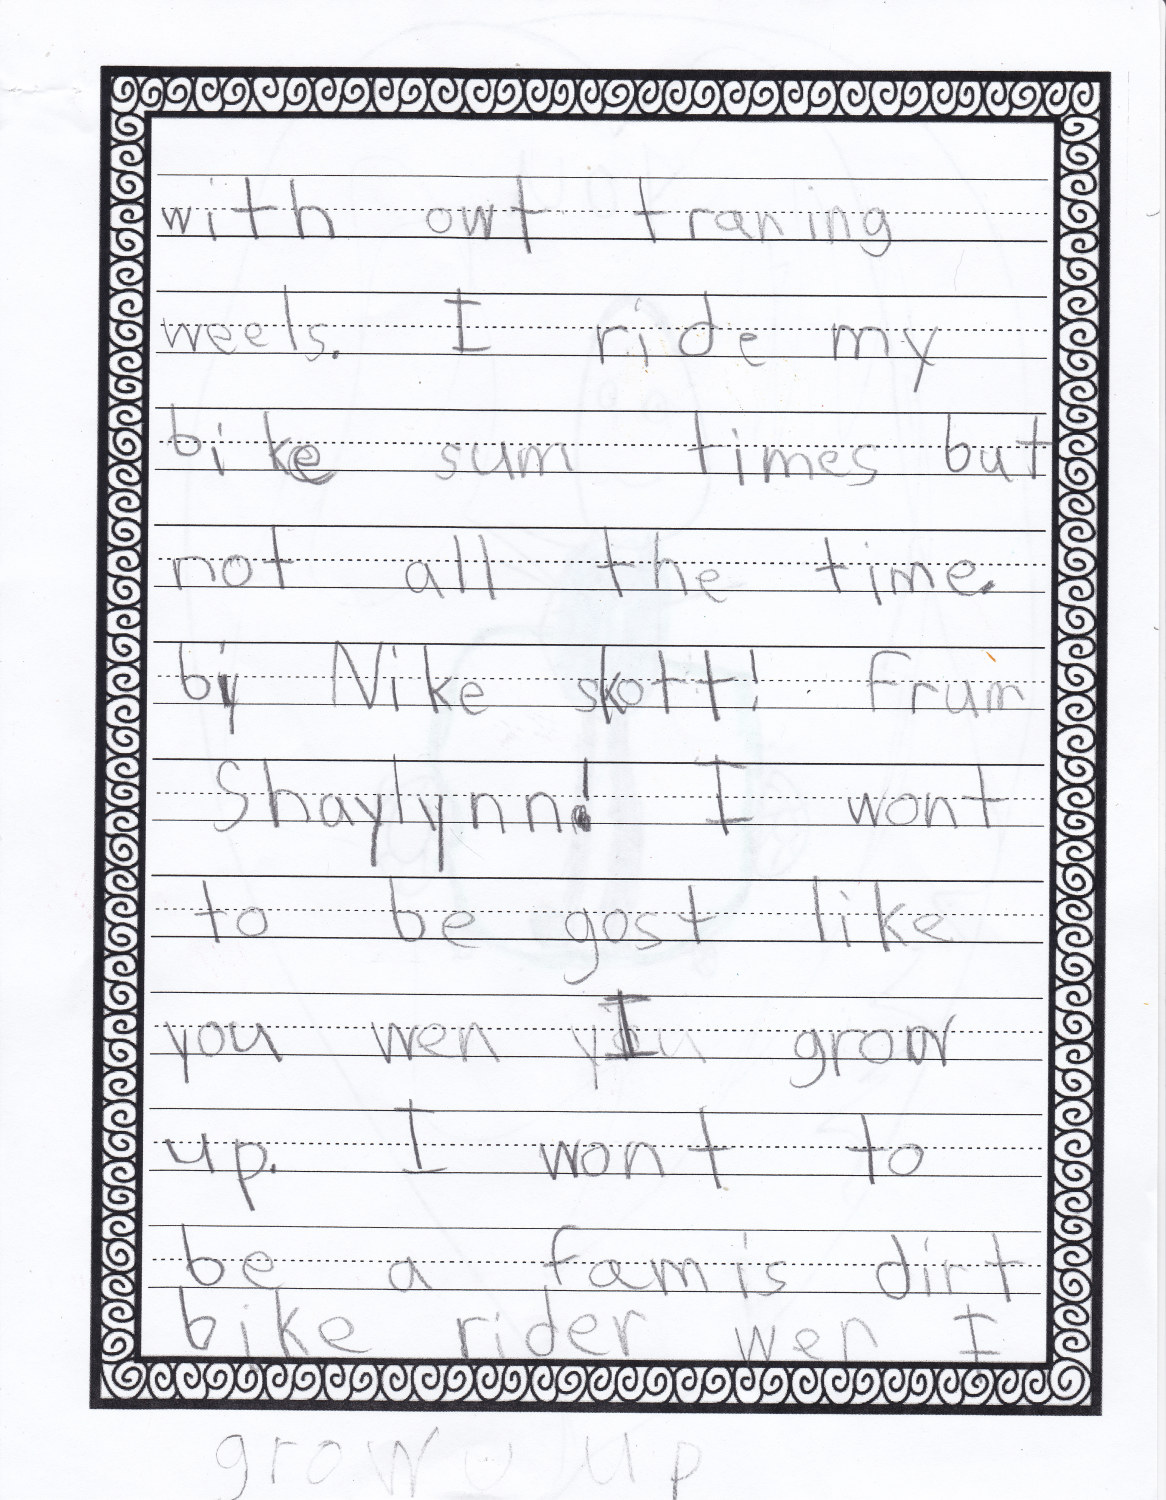 with owt traning
weels. I ride my
bike sum times but
not all the time.
by Nike skott! Frum
Shaylynn! I wont
to be gost like
you wen I grow
up. I wont to
be a famis dirt
bike rider wen I
grow up